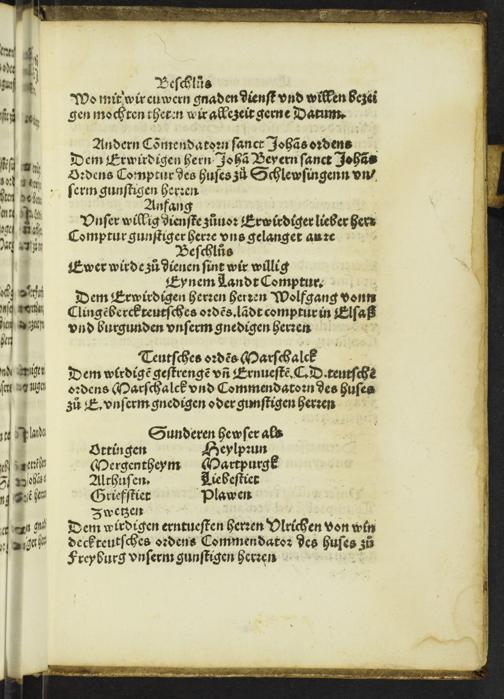 Beschlūs
Wo mit wir euwern gnaden dienst vnd willen bezei
gen mochten theten wir allezeit gerne Datum.
Andern Cōmendatorn sanct Johās ordens
Dem Erwirdigen hern Johā Beyern sanct Johās
Ordens Comptur des huses zů Schlewsingenn vn/
serm gunstigen herren
Anfang
Vnser willig dienste zůuor Erwirdiger lieber herr
Comptur gunstiger herre vns gelanget an ꝛc
Beschlūs
Ewer wirde zů dienen sint wir willig
Eynem Landt Comptur.
Dem Erwirdigen herren herren Wolfgang vonn
Clingēberck teutsches ordēs. lādt comptur in Elsaß
vnd burgunden vnserm gnedigen herren
Teutsches ordēs Marschalck
Dem wirdigē gestrengē vñ Ernuestē. C. D. teutschē
ordens Marschalck vnd Commendatorn des huses
zů E. vnserm gnedigen oder gunstigen herren
Sunderen hewser als
Ottingen Heylprun
Mergentheym Martpurgk
Althusen. Liebestiet
Griefstiet Plawen
Zwetzen
Dem wirdigen erntuesten herren Vlrichen von win
deck teutsches ordens Commendator des huses zů
Freyburg vnserm gunstigen herren